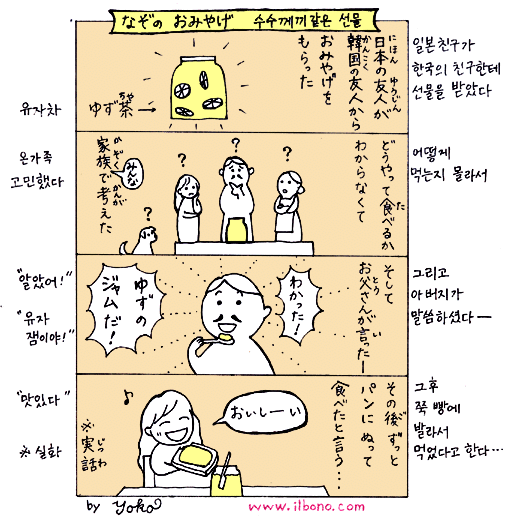 なぞの おみやげ 수수께끼 같은 선물
日本の友人が
にほん ゆうじん
韓国の友人から
かんこく
おみやげを
もらった
ゆず茶→
ちゃ
일본친구가
한국의 친구한테
선물을 받았다
유자차
どうやって食べるか
た
わからなくて
みんな
家族で考えた
かぞく かんが
?
?
?
?
어떻게
먹는지 몰라서
온가족
고민했다
そして
お父さんが言ったー
とう い
わかった!
ゆずの
ジャムだ!
그리고
아버지가
말씀하셨다ー
"알았어!"
"유자
잼이야!"
その後ずっと
ご
パンにぬって
食べたと言う…
おいしーい
♪
※実話
じつわ
그후
쭉 빵에
발라서
먹었다고 한다…
"맛있다"
※실화
by Yoko
www.ilbono.com